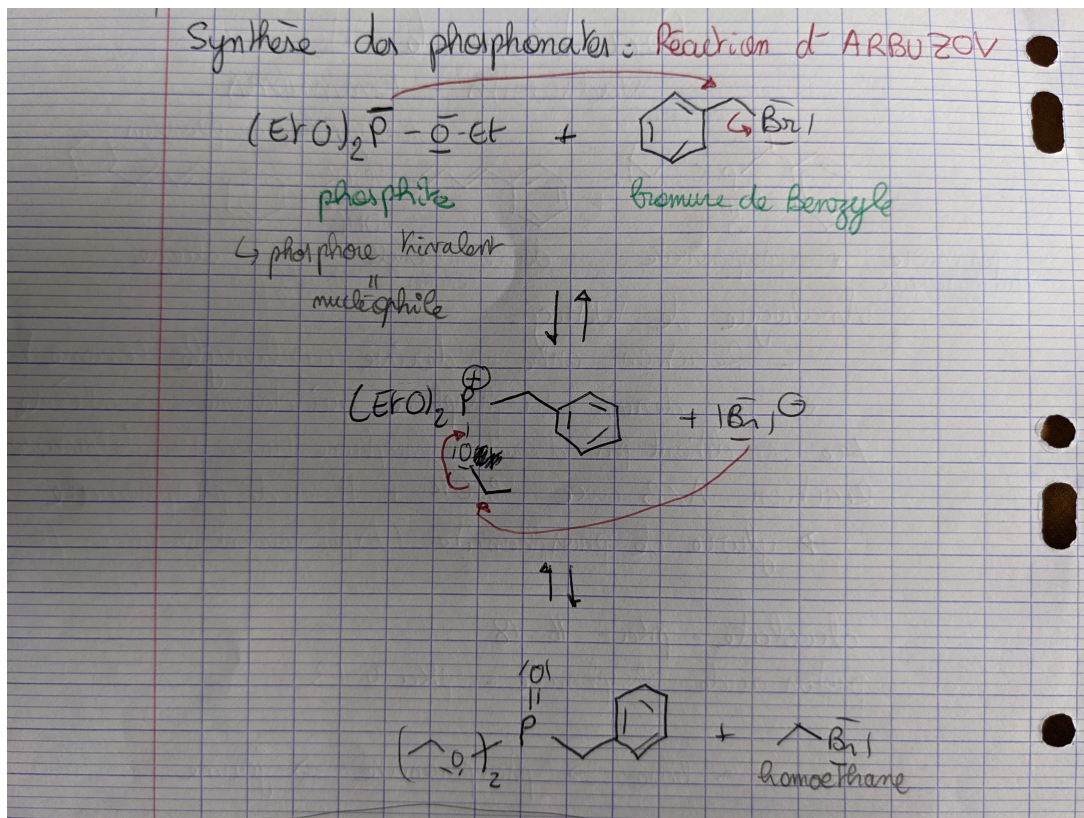 Synthèse des phosphonates : Réaction d'ARBUZOV
(EtO)₂P̄ - Ō - Et + Br̄|
phosphite bromure de Benzyle
↳ phosphore trivalent
"
nucléophile
(EtO)₂ P⊕ + |Br̄|⊖
|O
|O|
||
P
( O )₂ + Br̄|
bromoethane